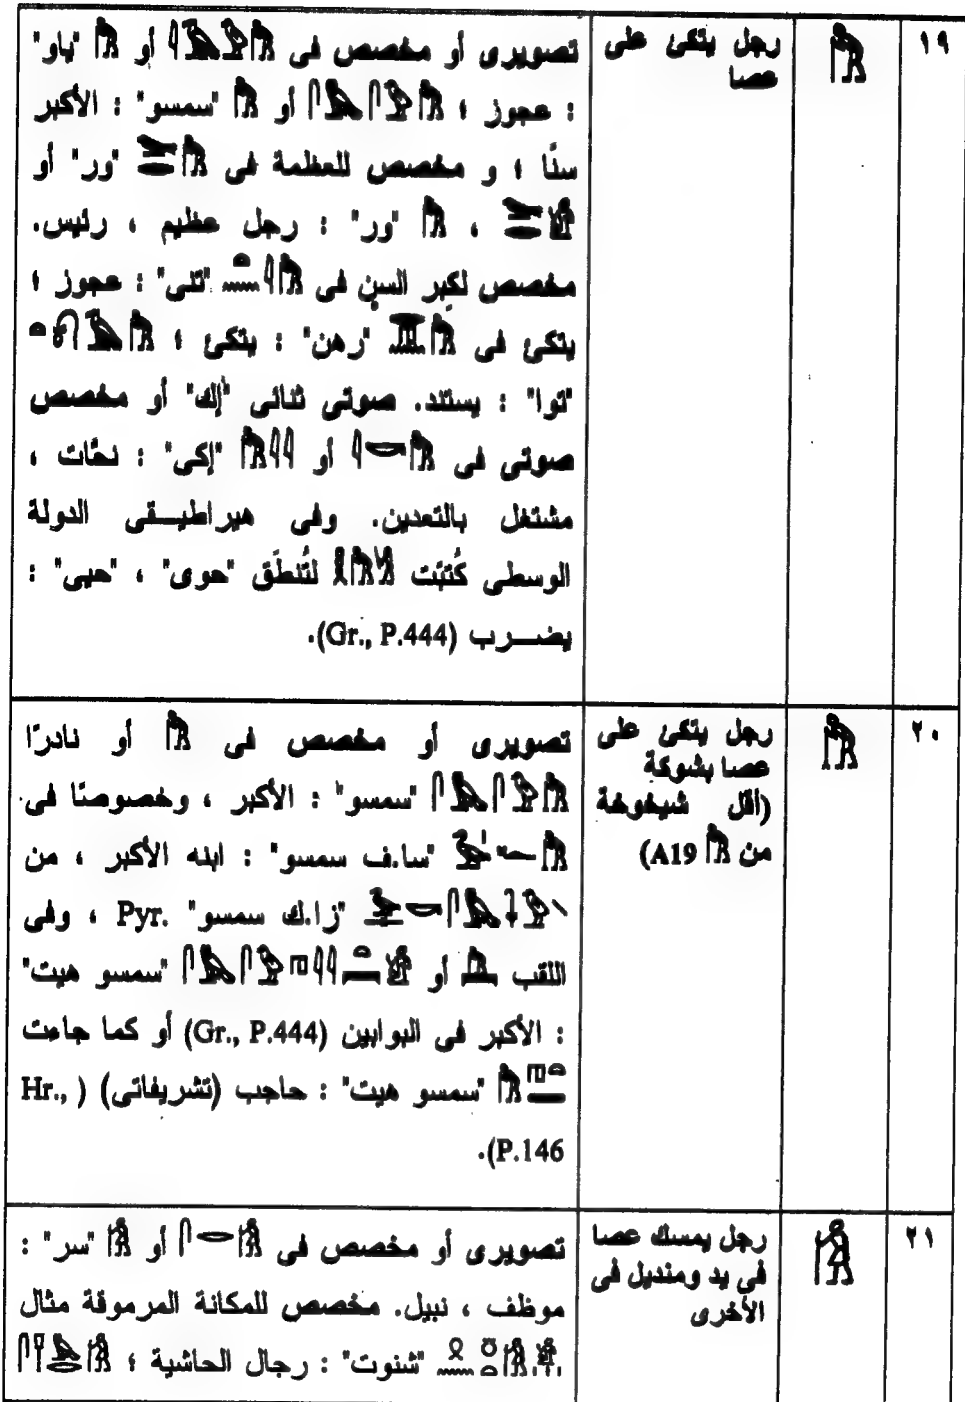 ١٩
رجل يتكئ على
عصا
تصويرى أو مخصص فى 𓀗𓅱𓄿𓇋 أو 𓀗 "ياو"
: عجوز ؛ 𓀗𓅱𓋴𓅓𓋴 أو 𓀗 "سمسو" : الأكبر
سنًا ؛ و مخصص للعظمة فى 𓀗𓂋𓅨 "ور" أو
𓅨𓂋 ، 𓀗 "ور" : رجل عظيم ، رئيس.
مخصص لكبر السن فى 𓀗𓇋𓈖𓏏 "تنى" : عجوز ؛
يتكئ فى 𓀗 "رهن" : يتكئ ؛ 𓀗
"توا" : يستند. صوتى ثنائى "إك" أو مخصص
صوتى فى 𓀗𓎡𓇋 أو 𓀗𓇋𓇋 "إكى" : نحّات ،
مشتغل بالتعدين. وفى هيراطيقى الدولة
الوسطى كُتبت 𓀗 لتُنطَق "حوى" ، "حبى" :
يضرب (Gr., P.444).
٢٠
رجل يتكئ على
عصا بشوكة
(أقل شيخوخة
من 𓀗 A19)
تصويرى أو مخصص فى 𓀘 أو نادرًا
𓀘𓅱𓋴𓅓𓋴 "سمسو" : الأكبر ، وخصوصًا فى
𓀘𓆑𓏤𓅭 "سا.ف سمسو" : ابنه الأكبر ، من
"زا.ك سمسو" Pyr. ، وفى
اللقب أو "سمسو هيت"
: الأكبر فى البوابين (Gr., P.444) أو كما جاءت
"سمسو هيت" : حاجب (تشريفاتى) (Hr.,
P.146).
٢١
رجل يمسك عصا
فى يد ومنديل فى
الأخرى
تصويرى أو مخصص فى 𓀙𓂋𓋴 أو 𓀙 "سر" :
موظف ، نبيل. مخصص للمكانة المرموقة مثال
"شنوت" : رجال الحاشية ؛